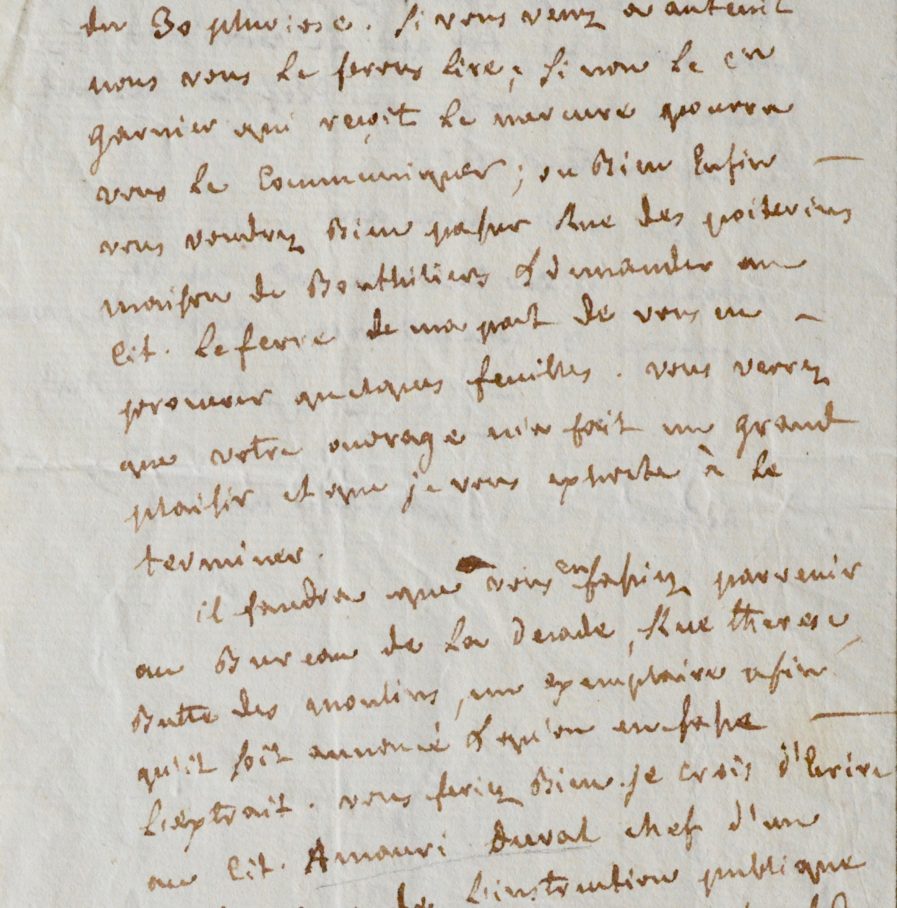 du 30 pluviose. Si vous venez à auteuil
nous vous le ferons lire; si non le cen
garnier qui reçoit le mercure pourra
vous le communiquer; ou bien enfin
vous voudrez bien passer Rue des poitevins
maison de Bouthilliers & demander au
Cit. Lefevre de ma part de vous en
procurer quelques feuilles. vous verrez
que votre ouvrage m'a fait un grand
plaisir et que je vous exhorte à le
terminer.
il faudra que vous en fassiez parvenir
au Bureau de la Decade, Rue therese
Butte des moulins, un exemplaire afin
qu'il soit annoncé & qu'on en fasse
l'extrait. vous feriez bien je crois d'Ecrire
au Cit. Amauri Duval chef d'un
de l'instruction publique